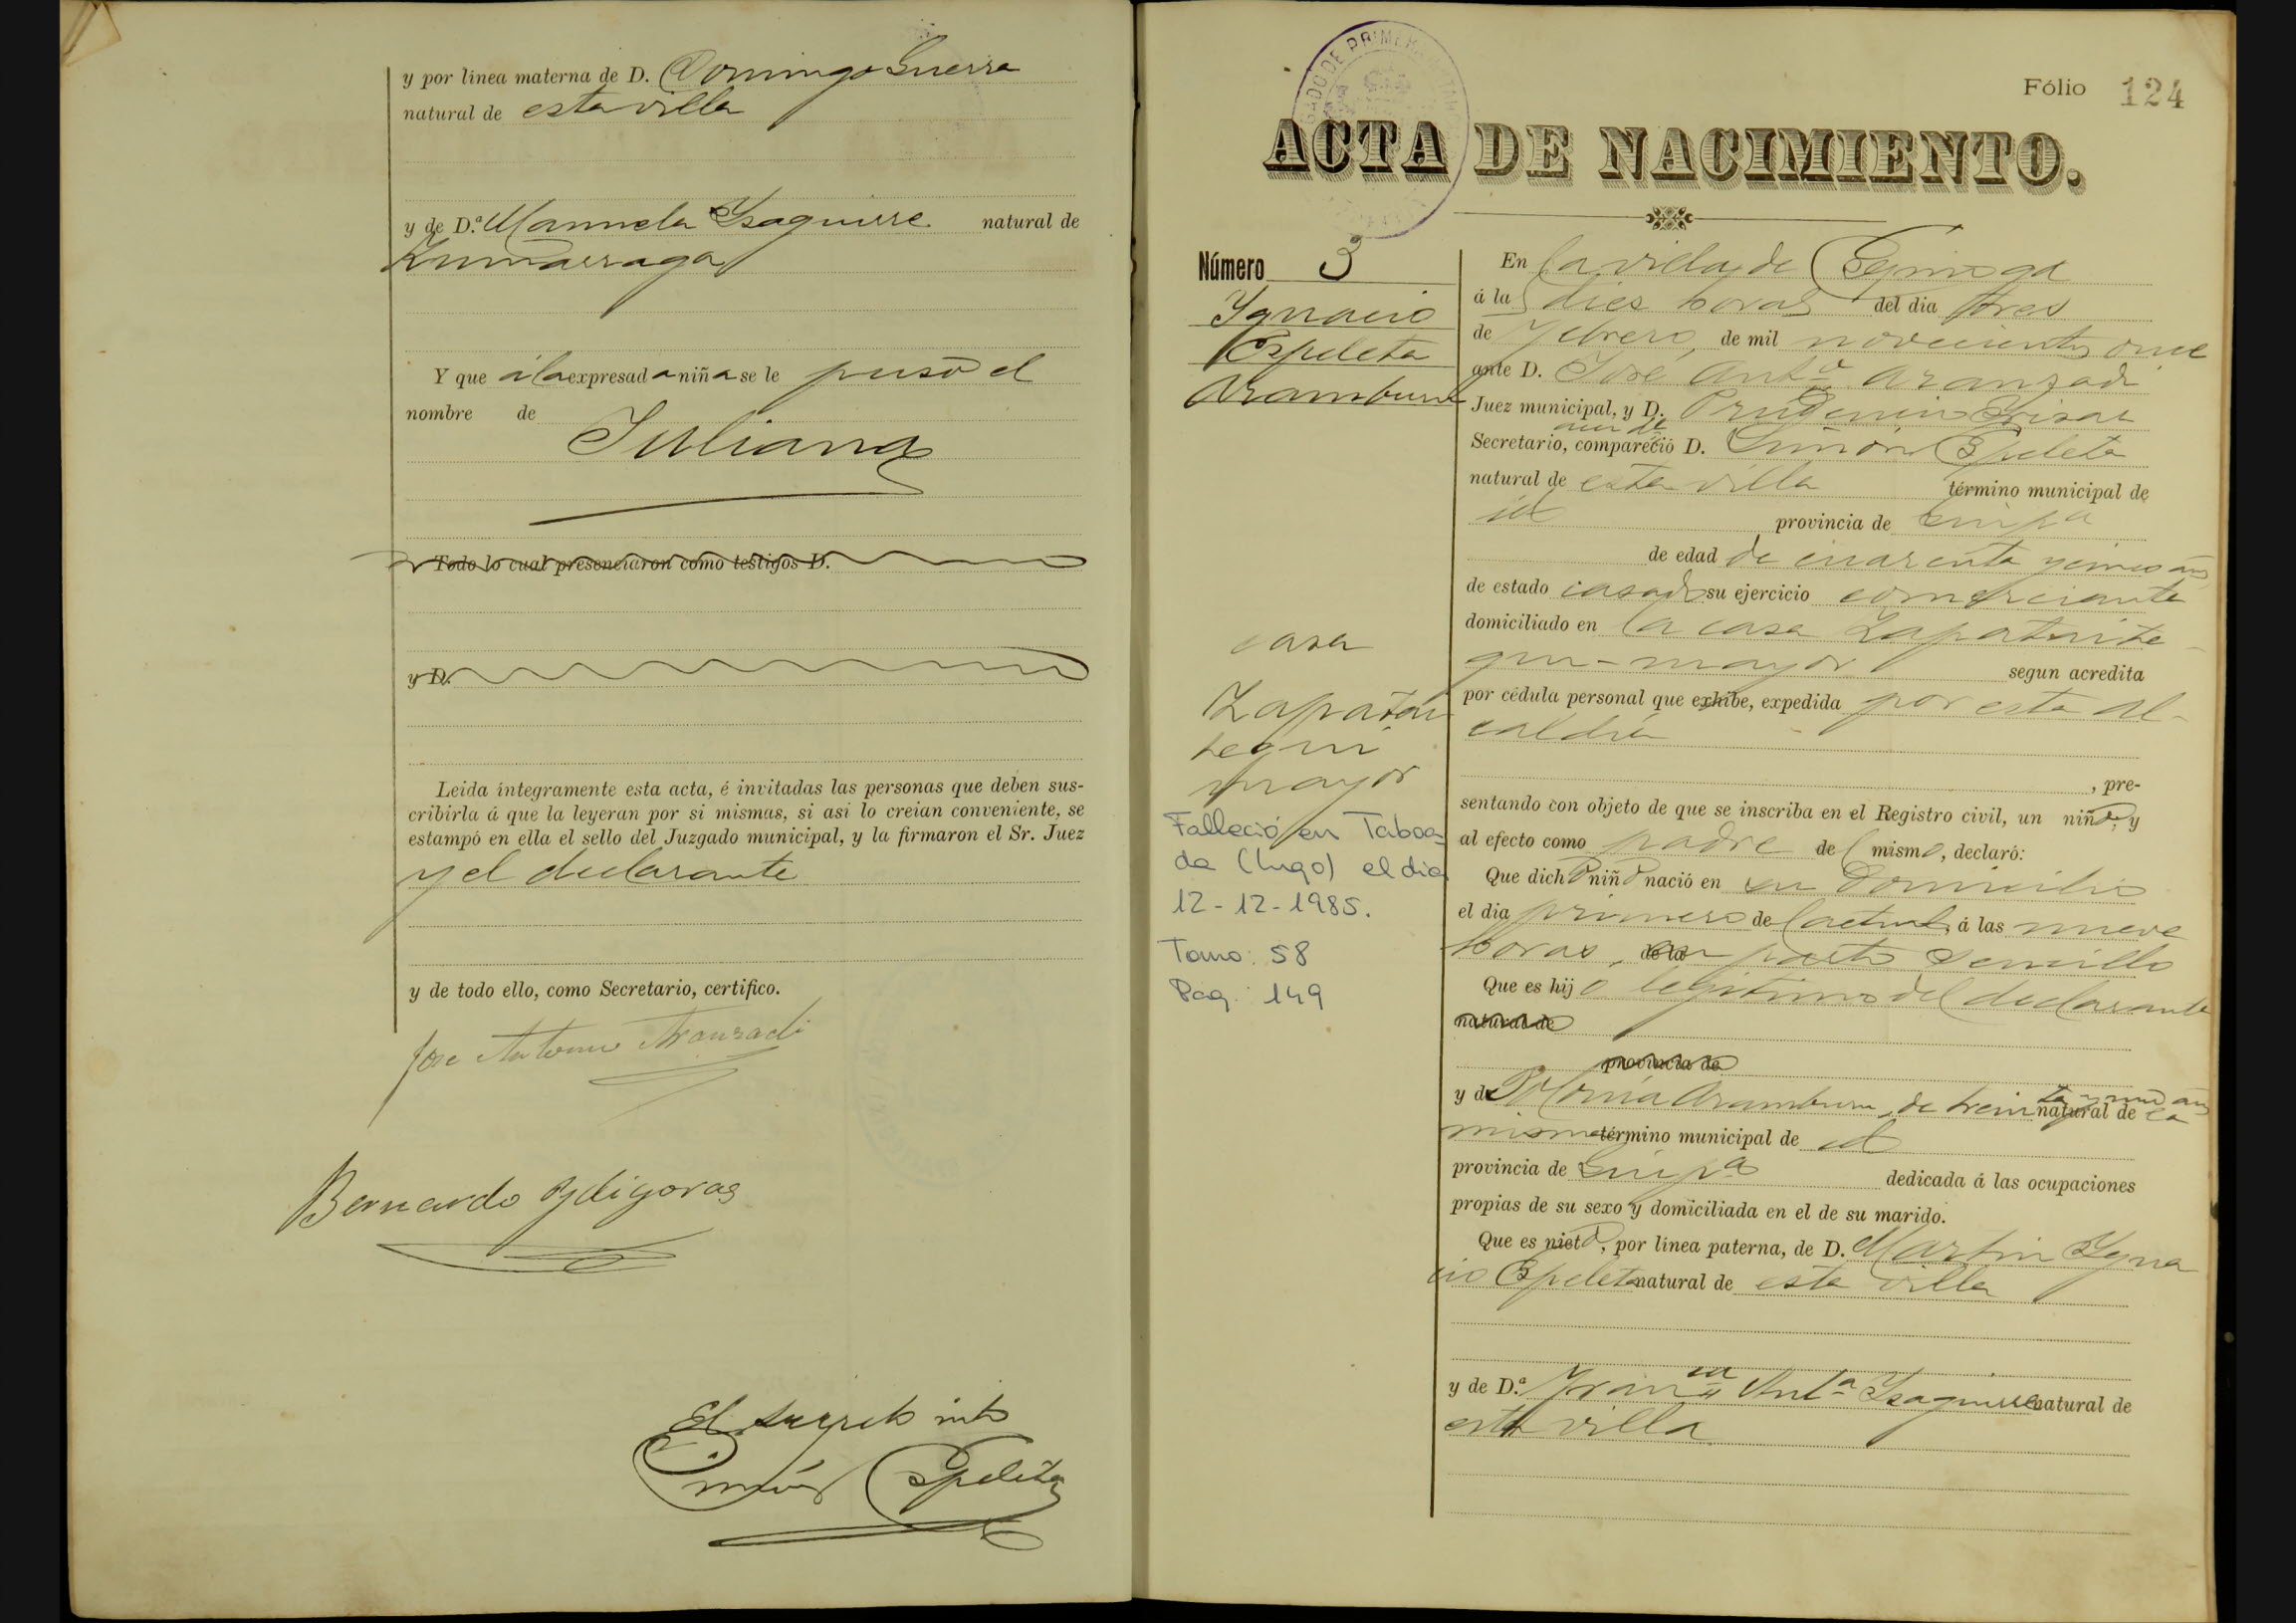 y por línea materna de D. Domingo Guerra
natural de esta villa
y de D.ª Manuela Yzaguirre natural de
Zumarraga
Y que á la expresada niña se le puso el
nombre de
Juliana
Todo lo cual presenciaron como testigos D.
y D.
Leida íntegramente esta acta, é invitadas las personas que deben sus-
cribirla á que la leyeran por si mismas, si asi lo creian conveniente, se
estampó en ella el sello del Juzgado municipal, y la firmaron el Sr. Juez
y el declarante
y de todo ello, como Secretario, certifico.
Jose Antonio Aranzadi
Bernardo Ydigoras
El secreto intº
Simón Espeleta
Fólio 124
ACTA DE NACIMIENTO.
Número 3
Ygnacio
Espeleta
Aramburu
casa
Zapatari
tegui
mayor
Falleció en Taboa-
da (Lugo) el dia
12-12-1985.
Tomo: 58
Pag.: 149
En la villa de
á las diez horas del dia tres
de Febrero, de mil novecientos once
ante D. José Antº Aranzadi
Juez municipal, y D. Prudencio Yrizar
Secretario, compareció D. Simón Espeleta
natural de esta villa término municipal de
id provincia de Guipª
de edad de cuarenta y cinco años
de estado casado su ejercicio comerciante
domiciliado en la casa Zapatarite-
gui-mayor segun acredita
por cédula personal que exhibe, expedida por esta Al-
caldía
, pre-
sentando con objeto de que se inscriba en el Registro civil, un niño, y
al efecto como padre del mismo, declaró:
Que dicho niño nació en su domicilio
el dia primero del actual, á las nueve
horas, de la en parto sencillo
Que es hijo legítimo del declarante
natural de
provincia de
y de Polonia Aramburu, de treinta y un años natural de la
misma término municipal de id
provincia de Guipª dedicada á las ocupaciones
propias de su sexo y domiciliada en el de su marido.
Que es nieto, por línea paterna, de D. Martin Ygna
cio Espeleta natural de esta villa
y de D.ª Franca Antª Yzaguirre natural de
esta villa